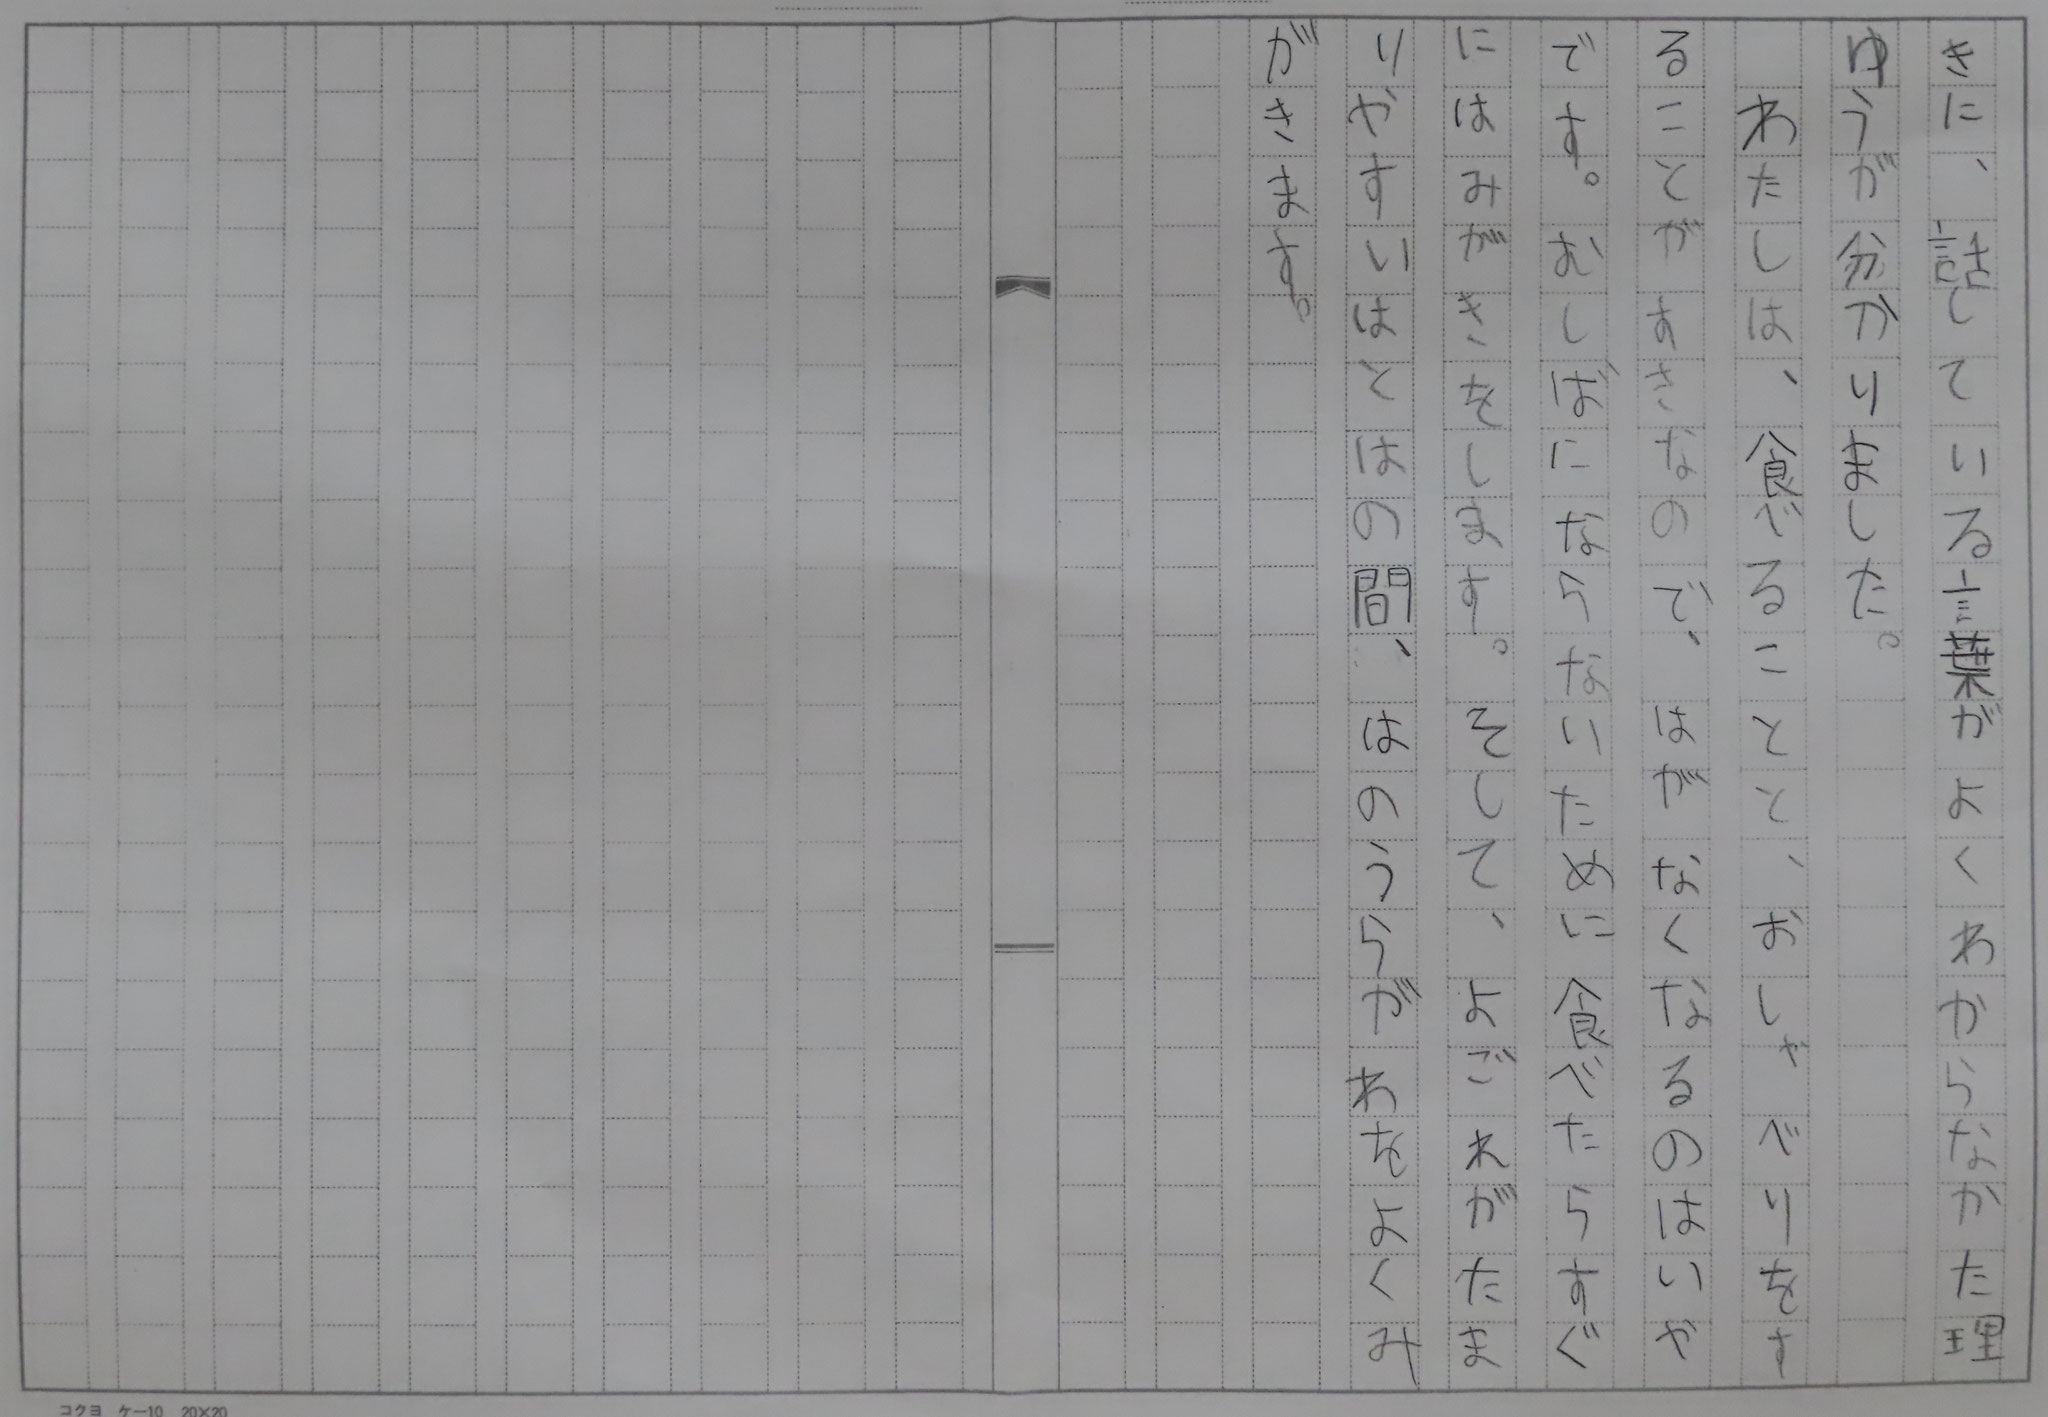 きに、話している言葉がよくわからなかた理
ゆうが分かりました。
わたしは、食べることと、おしゃべりをす
ることがすきなので、はがなくなるのはいや
です。むしばにならないために食べたらすぐ
にはみがきをします。そして、よごれがたま
りやすいはとはの間、はのうらがわをよくみ
がきます。
コクヨ ケー10 20×20